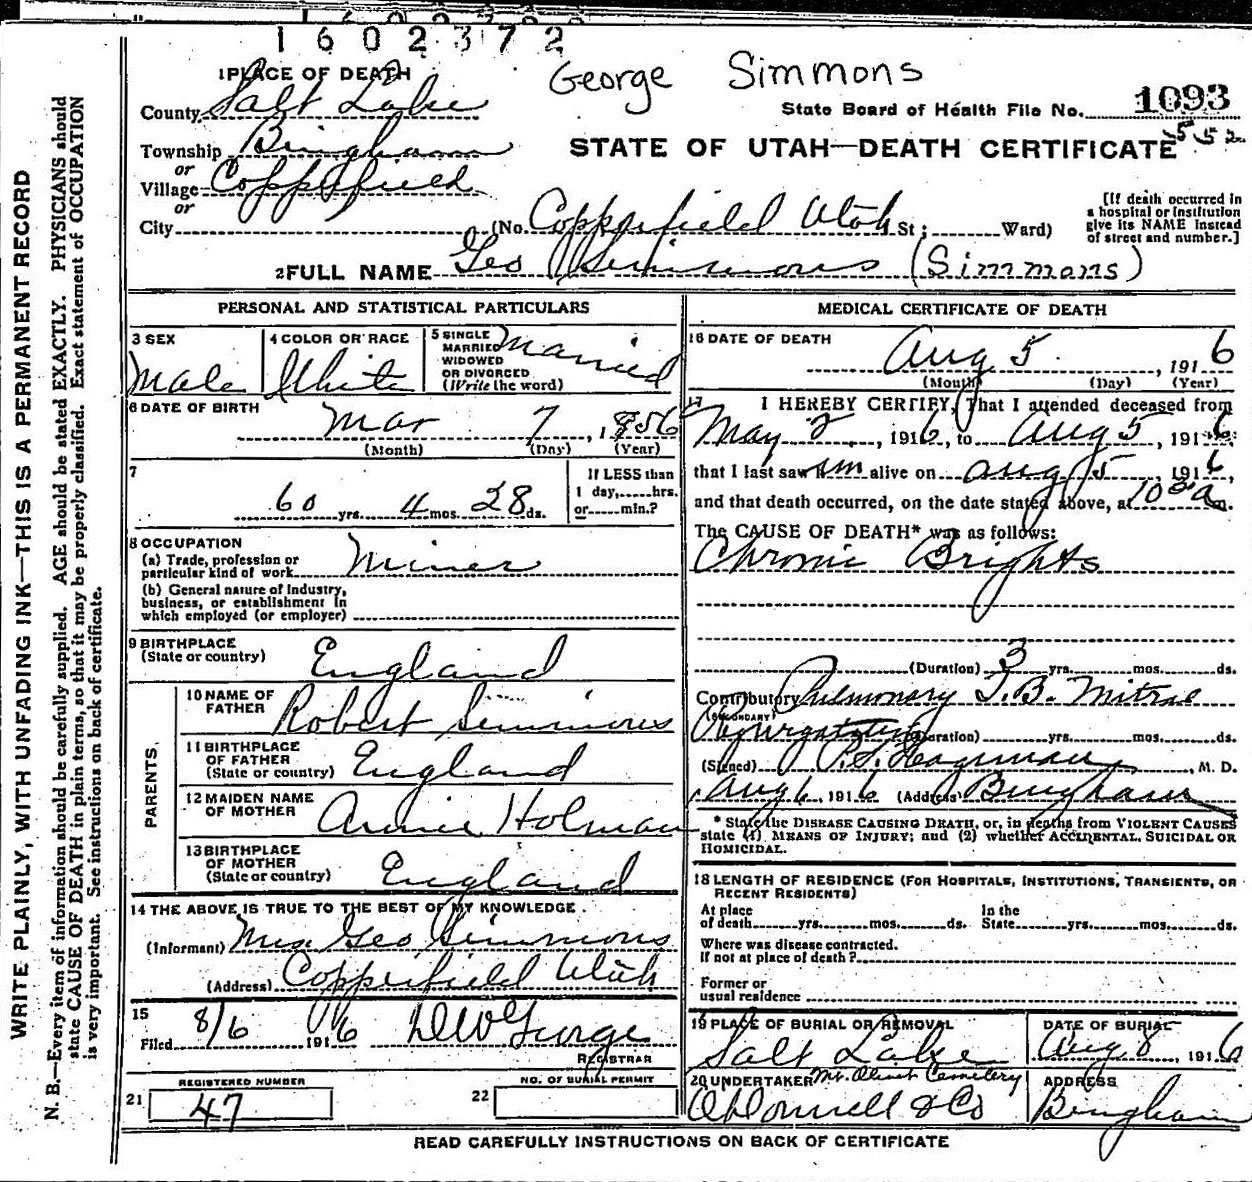 1602372
George Simmons
State Board of Health File No. 1093
552
STATE OF UTAH—DEATH CERTIFICATE
1 PLACE OF DEATH
County Salt Lake
Township Bingham
or
Village Copperfield
or
City (No. Copperfield Utah St; Ward)
[If death occurred in
a hospital or institution
give its NAME instead
of street and number.]
2 FULL NAME Geo Simmons (Simmons)
PERSONAL AND STATISTICAL PARTICULARS
3 SEX
Male
4 COLOR OR RACE
White
5 SINGLE
MARRIED
WIDOWED
OR DIVORCED
(Write the word)
Married
6 DATE OF BIRTH
Mar 7, 1856
(Month) (Day) (Year)
7
60 yrs. 4 mos. 28 ds.
If LESS than
1 day,......hrs.
or......min.?
8 OCCUPATION
(a) Trade, profession or
particular kind of work Miner
(b) General nature of Industry,
business, or establishment in
which employed (or employer)
9 BIRTHPLACE
(State or country) England
PARENTS.
10 NAME OF
FATHER Robert Simmons
11 BIRTHPLACE
OF FATHER
(State or country) England
12 MAIDEN NAME
OF MOTHER Annie Holman
13 BIRTHPLACE
OF MOTHER
(State or country) England
14 THE ABOVE IS TRUE TO THE BEST OF MY KNOWLEDGE
(Informant) Mrs Geo Simmons
(Address) Copperfield Utah
15
Filed 8/6 1916 DW George
REGISTRAR
REGISTERED NUMBER
21 47
NO. OF BURIAL PERMIT
22
MEDICAL CERTIFICATE OF DEATH
16 DATE OF DEATH
Aug 5, 1916
(Month) (Day) (Year)
17 I HEREBY CERTIFY, That I attended deceased from
May 2, 1916, to Aug 5, 1916
that I last saw him alive on Aug 5, 1916,
and that death occurred, on the date stated above, at 10 a m.
The CAUSE OF DEATH* was as follows:
Chronic Brights
(Duration) 3 yrs. mos. ds.
Contributory Pulmonary T.B. Mitral
(SECONDARY)
Regurgitation (Duration) yrs. mos. ds.
(Signed) M. D.
Aug 6, 1916 (Address) Bingham
* State the DISEASE CAUSING DEATH, or, in deaths from VIOLENT CAUSES
state (1) MEANS OF INJURY; and (2) whether ACCIDENTAL, SUICIDAL OR
HOMICIDAL.
18 LENGTH OF RESIDENCE (FOR HOSPITALS, INSTITUTIONS, TRANSIENTS, OR
RECENT RESIDENTS)
At place
of death yrs. mos. ds.
In the
State yrs. mos. ds.
Where was disease contracted.
If not at place of death?
Former or
usual residence
19 PLACE OF BURIAL OR REMOVAL
Salt Lake
Mt. Olivet Cemetery
DATE OF BURIAL
Aug 8, 1916
20 UNDERTAKER
O'Donnell & Co
ADDRESS
Bingham
READ CAREFULLY INSTRUCTIONS ON BACK OF CERTIFICATE
WRITE PLAINLY, WITH UNFADING INK—THIS IS A PERMANENT RECORD
N. B.—Every item of information should be carefully supplied. AGE should be stated EXACTLY. PHYSICIANS should
state CAUSE OF DEATH in plain terms, so that it may be properly classified. Exact statement of OCCUPATION
is very important. See instructions on back of certificate.